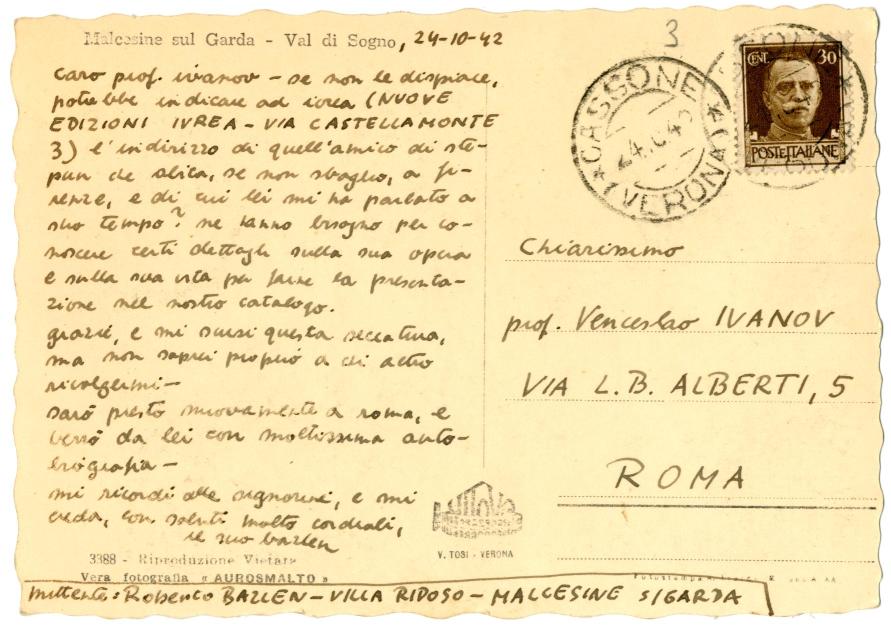 Malcesine sul Garda - Val di Sogno, 24-10-42
caro prof. ivanov - se non le dispiace,
potrebbe indicare ad ivrea (NUOVE
EDIZIONI IVREA - VIA CASTELLAMONTE
3) l'indirizzo di quell'amico di ste-
pun che abita, se non sbaglio, a fi-
renze, e di cui lei mi ha parlato a
suo tempo? ne hanno bisogno per co-
noscere certi dettagli sulla sua opera
e sulla sua vita per farne la presenta-
zione nel nostro catalogo.
grazie, e mi scusi questa seccatura,
ma non saprei proprio a chi altro
rivolgermi -
sarò presto nuovamente a roma, e
verrò da lei con moltissima auto-
biografia -
mi ricordi alle signorine, e mi
creda, con saluti molto cordiali,
il suo bazlen
3388 - Riproduzione Vietata
Vera fotografia « AUROSMALTO »
mittente: Roberto BAZLEN - VILLA RIPOSO - MALCESINE S/GARDA
V. TOSI - VERONA
3
CASSONE
VERONA
CENT. 30
POSTE ITALIANE
Chiarissimo
prof. Venceslao IVANOV
VIA L. B. ALBERTI, 5
ROMA